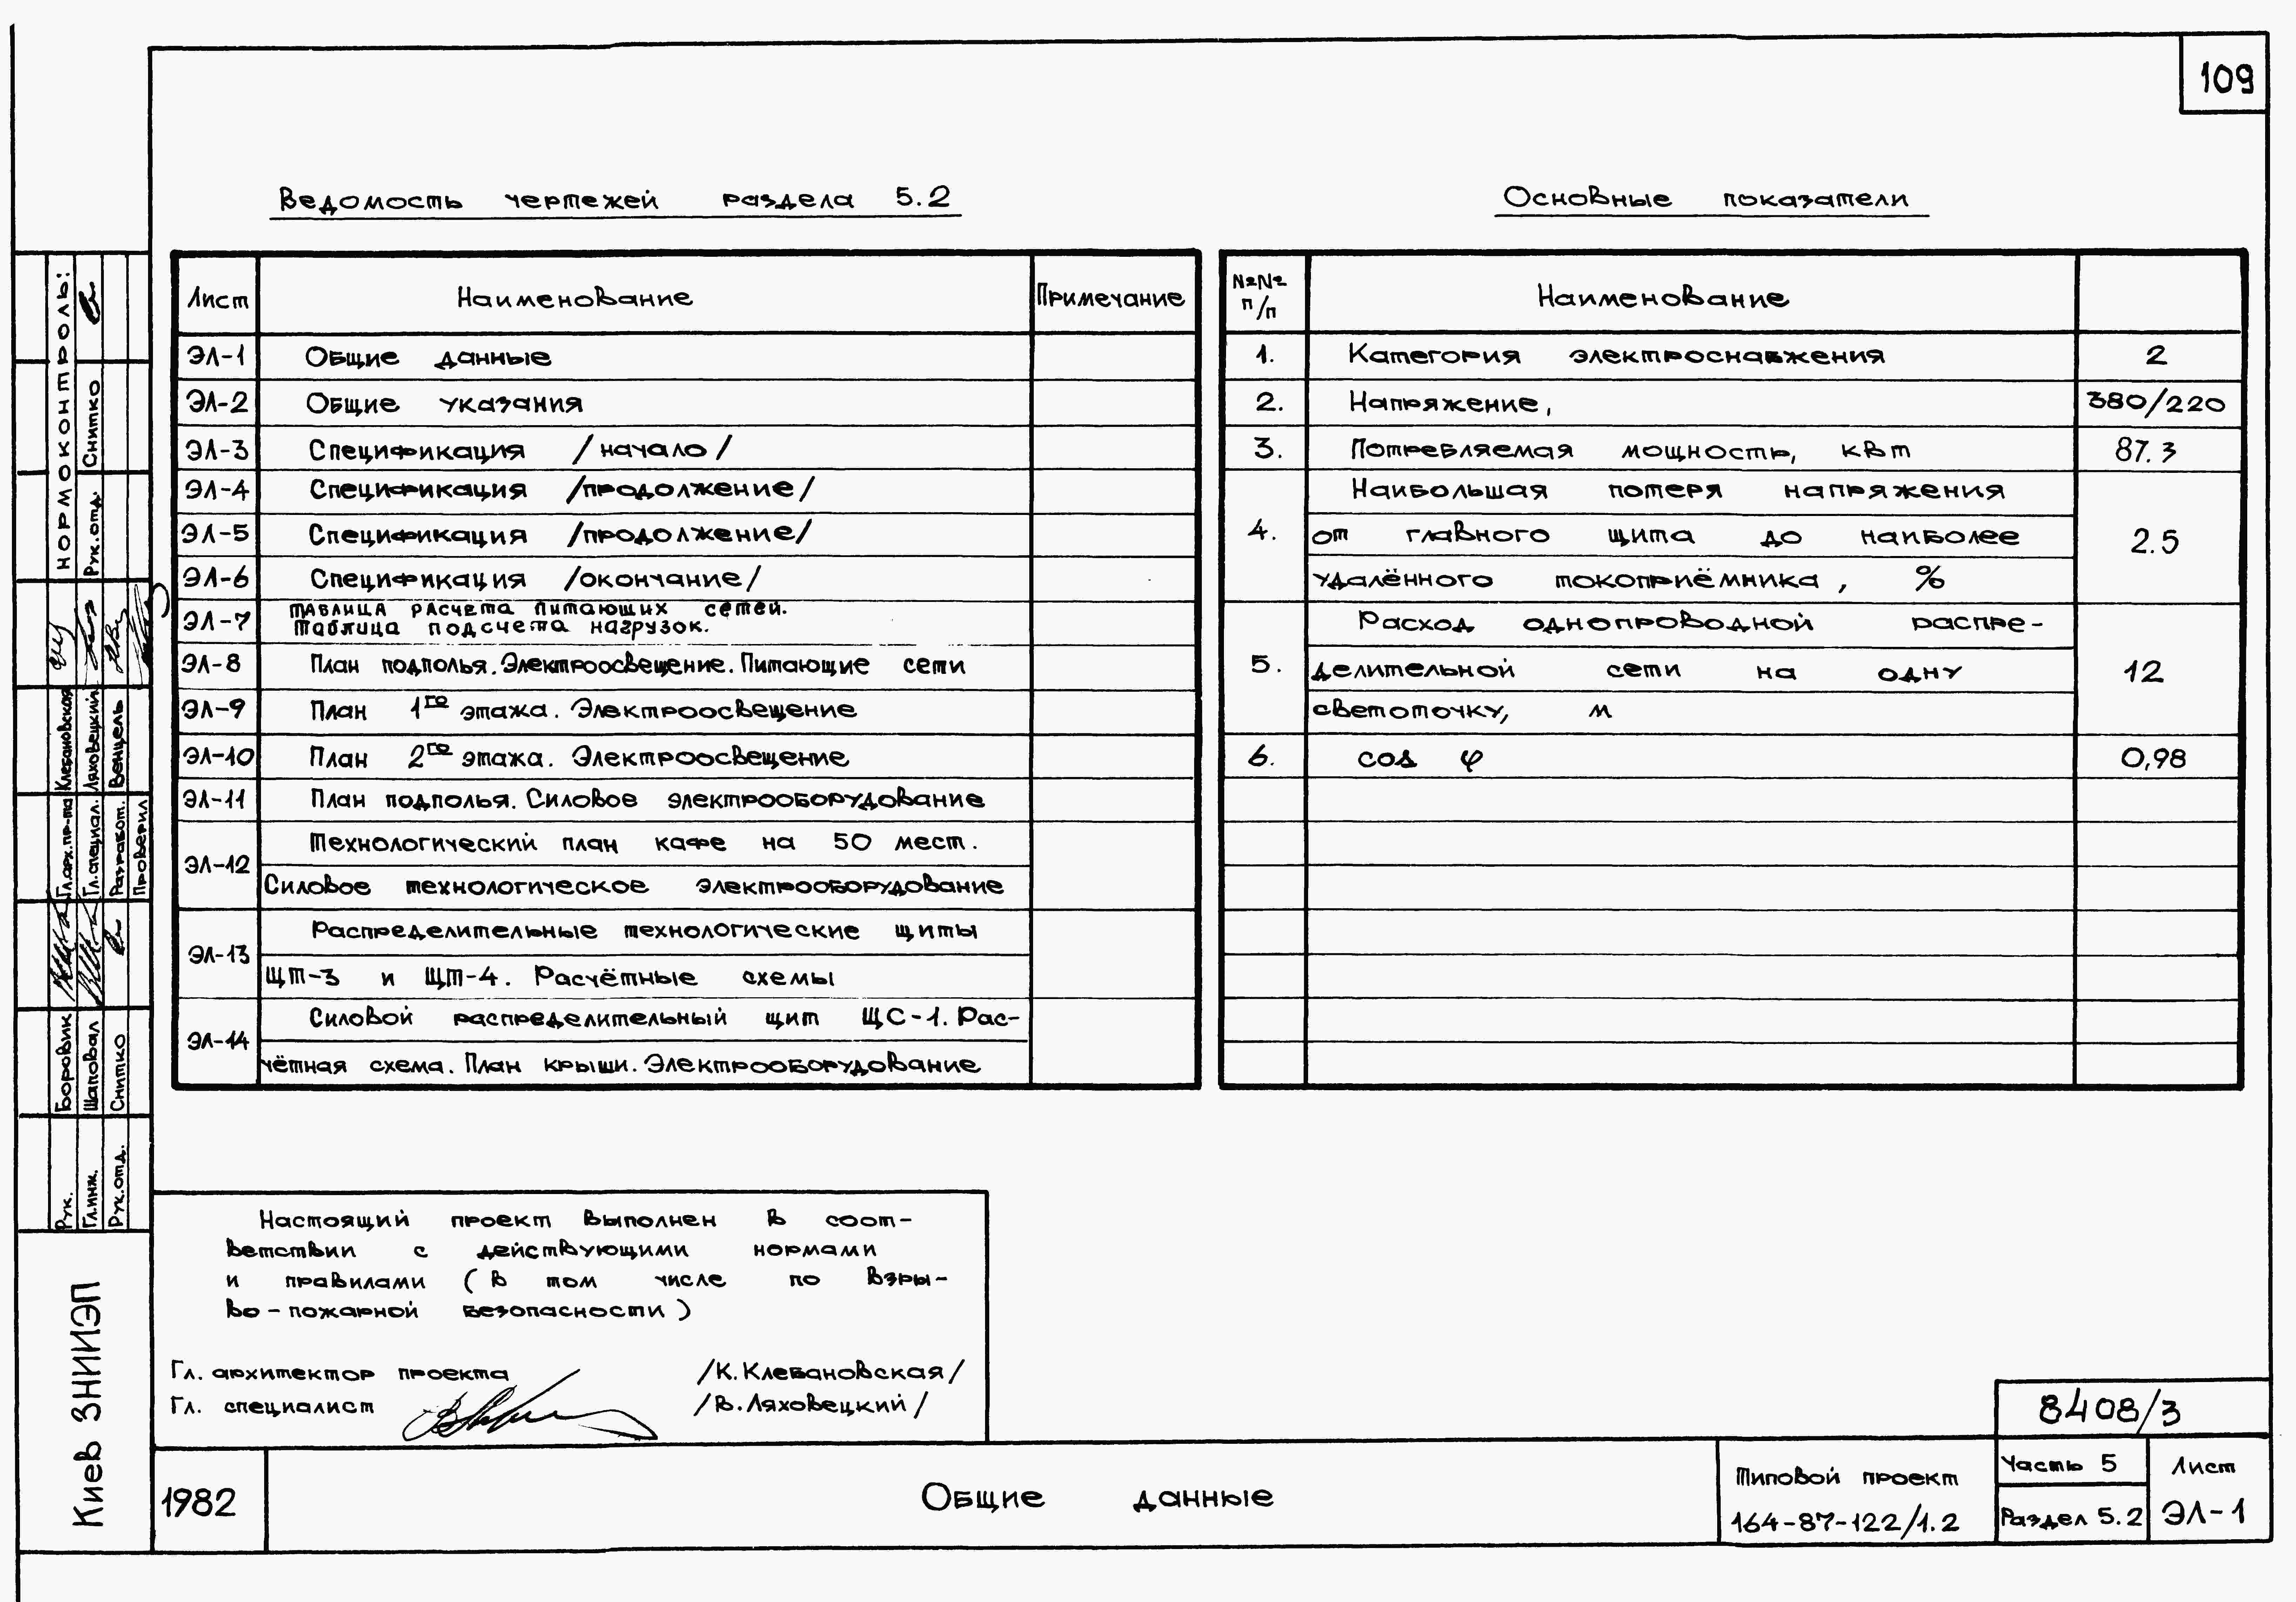 109
Ведомость чертежей раздела 5.2
Лист Наименование Примечание
ЭЛ-1 Общие данные
ЭЛ-2 Общие указания
ЭЛ-3 Спецификация /начало/
ЭЛ-4 Спецификация /продолжение/
ЭЛ-5 Спецификация /продолжение/
ЭЛ-6 Спецификация /окончание/
ЭЛ-7 Таблица расчета питающих сетей.
Таблица подсчета нагрузок.
ЭЛ-8 План подполья. Электроосвещение. Питающие сети
ЭЛ-9 План 1го этажа. Электроосвещение
ЭЛ-10 План 2го этажа. Электроосвещение
ЭЛ-11 План подполья. Силовое электрооборудование
ЭЛ-12 Технологический план кафе на 50 мест.
Силовое технологическое электрооборудование
ЭЛ-13 Распределительные технологические щиты
ЩТ-3 и ЩТ-4. Расчётные схемы
ЭЛ-14 Силовой распределительный щит ЩС-1. Рас-
чётная схема. План крыши. Электрооборудование
Основные показатели
№№ п/п Наименование
1. Категория электроснабжения 2
2. Напряжение, 380/220
3. Потребляемая мощность, квт 87.3
4. Наибольшая потеря напряжения
от главного щита до наиболее
удалённого токоприёмника, % 2.5
5. Расход однопроводной распре-
делительной сети на одну
светоточку, м 12
6. cos φ 0,98
Настоящий проект выполнен в соот-
ветствии с действующими нормами
и правилами (в том числе по взры-
во-пожарной безопасности)
Гл. архитектор проекта /К. Клебановская/
Гл. специалист /В. Ляховецкий/
8408/3
1982
Общие данные
Типовой проект
164-87-122/1.2
Часть 5
Раздел 5.2
Лист
ЭЛ-1
Киев ЗНИИЭП
Рук. Боровик Гл.арх.пр-та Клебановская Нормоконтроль:
Гл.инж. Шаповал Гл.специал. Ляховецкий Рук.отд. Снитко
Рук.отд. Снитко Разработ. Венцель
Проверил